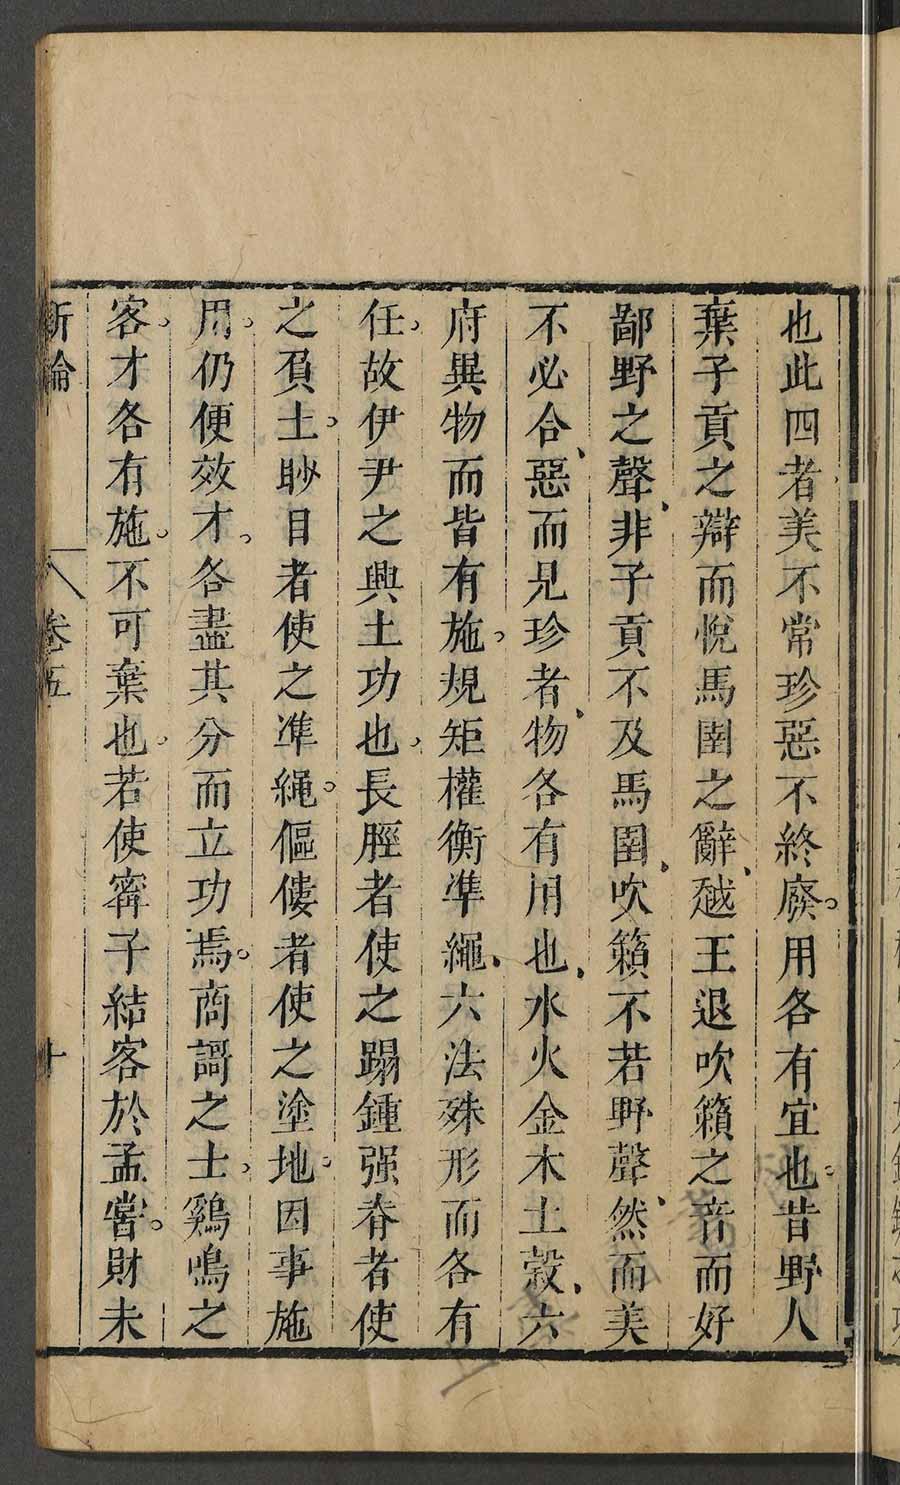 也此四者美不常珍惡不終廢。用各有宜也。昔野人
棄子貢之辯而悅馬圉之辭、越王退吹籟之音而好
鄙野之聲、非子貢不及馬圉、吹籟不若野聲、然而美
不必合、惡而見珍者、物各有用也、水火金木土穀、六
府異物而皆有施。規矩權衡準繩、六法殊形而各有
任。故伊尹之興土功也、長脛者使之蹋鍾强脊者使
之負土。眇目者使之準繩。傴僂者使之塗地。因事施
用。仍便效才。各盡其分而立功焉。商謌之士、鷄鳴之
客。才各有施。不可棄也。若使甯子結客於孟嘗。財未
新論 卷五 十